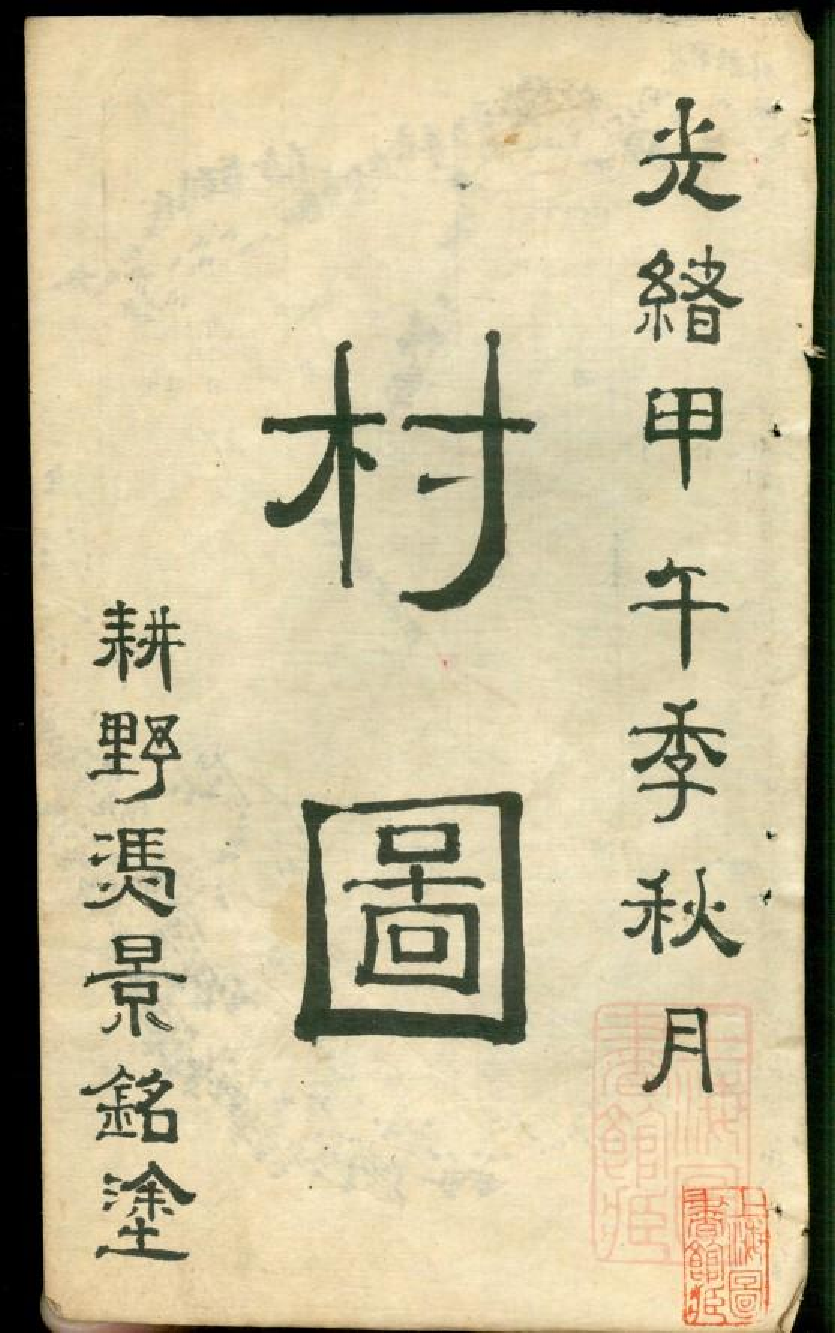 光緒甲午季秋月
村圖
耕野馮景銘塗
上海圖書館藏
上海圖書館藏